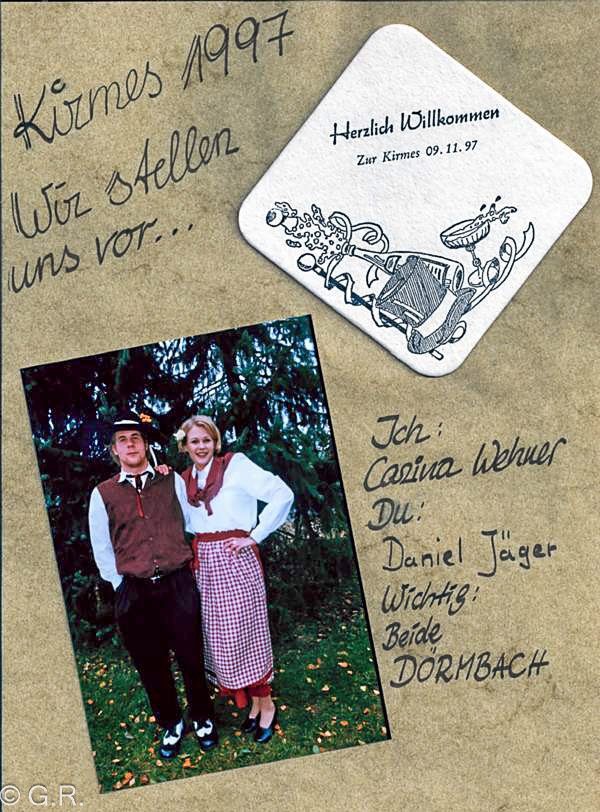 Kirmes 1997
Wir stellen
uns vor...
Herzlich Willkommen
Zur Kirmes 09.11.97
Ich:
Carina Wehner
Du:
Daniel Jäger
Wichtig:
Beide
DÖRMBACH
© G.R.